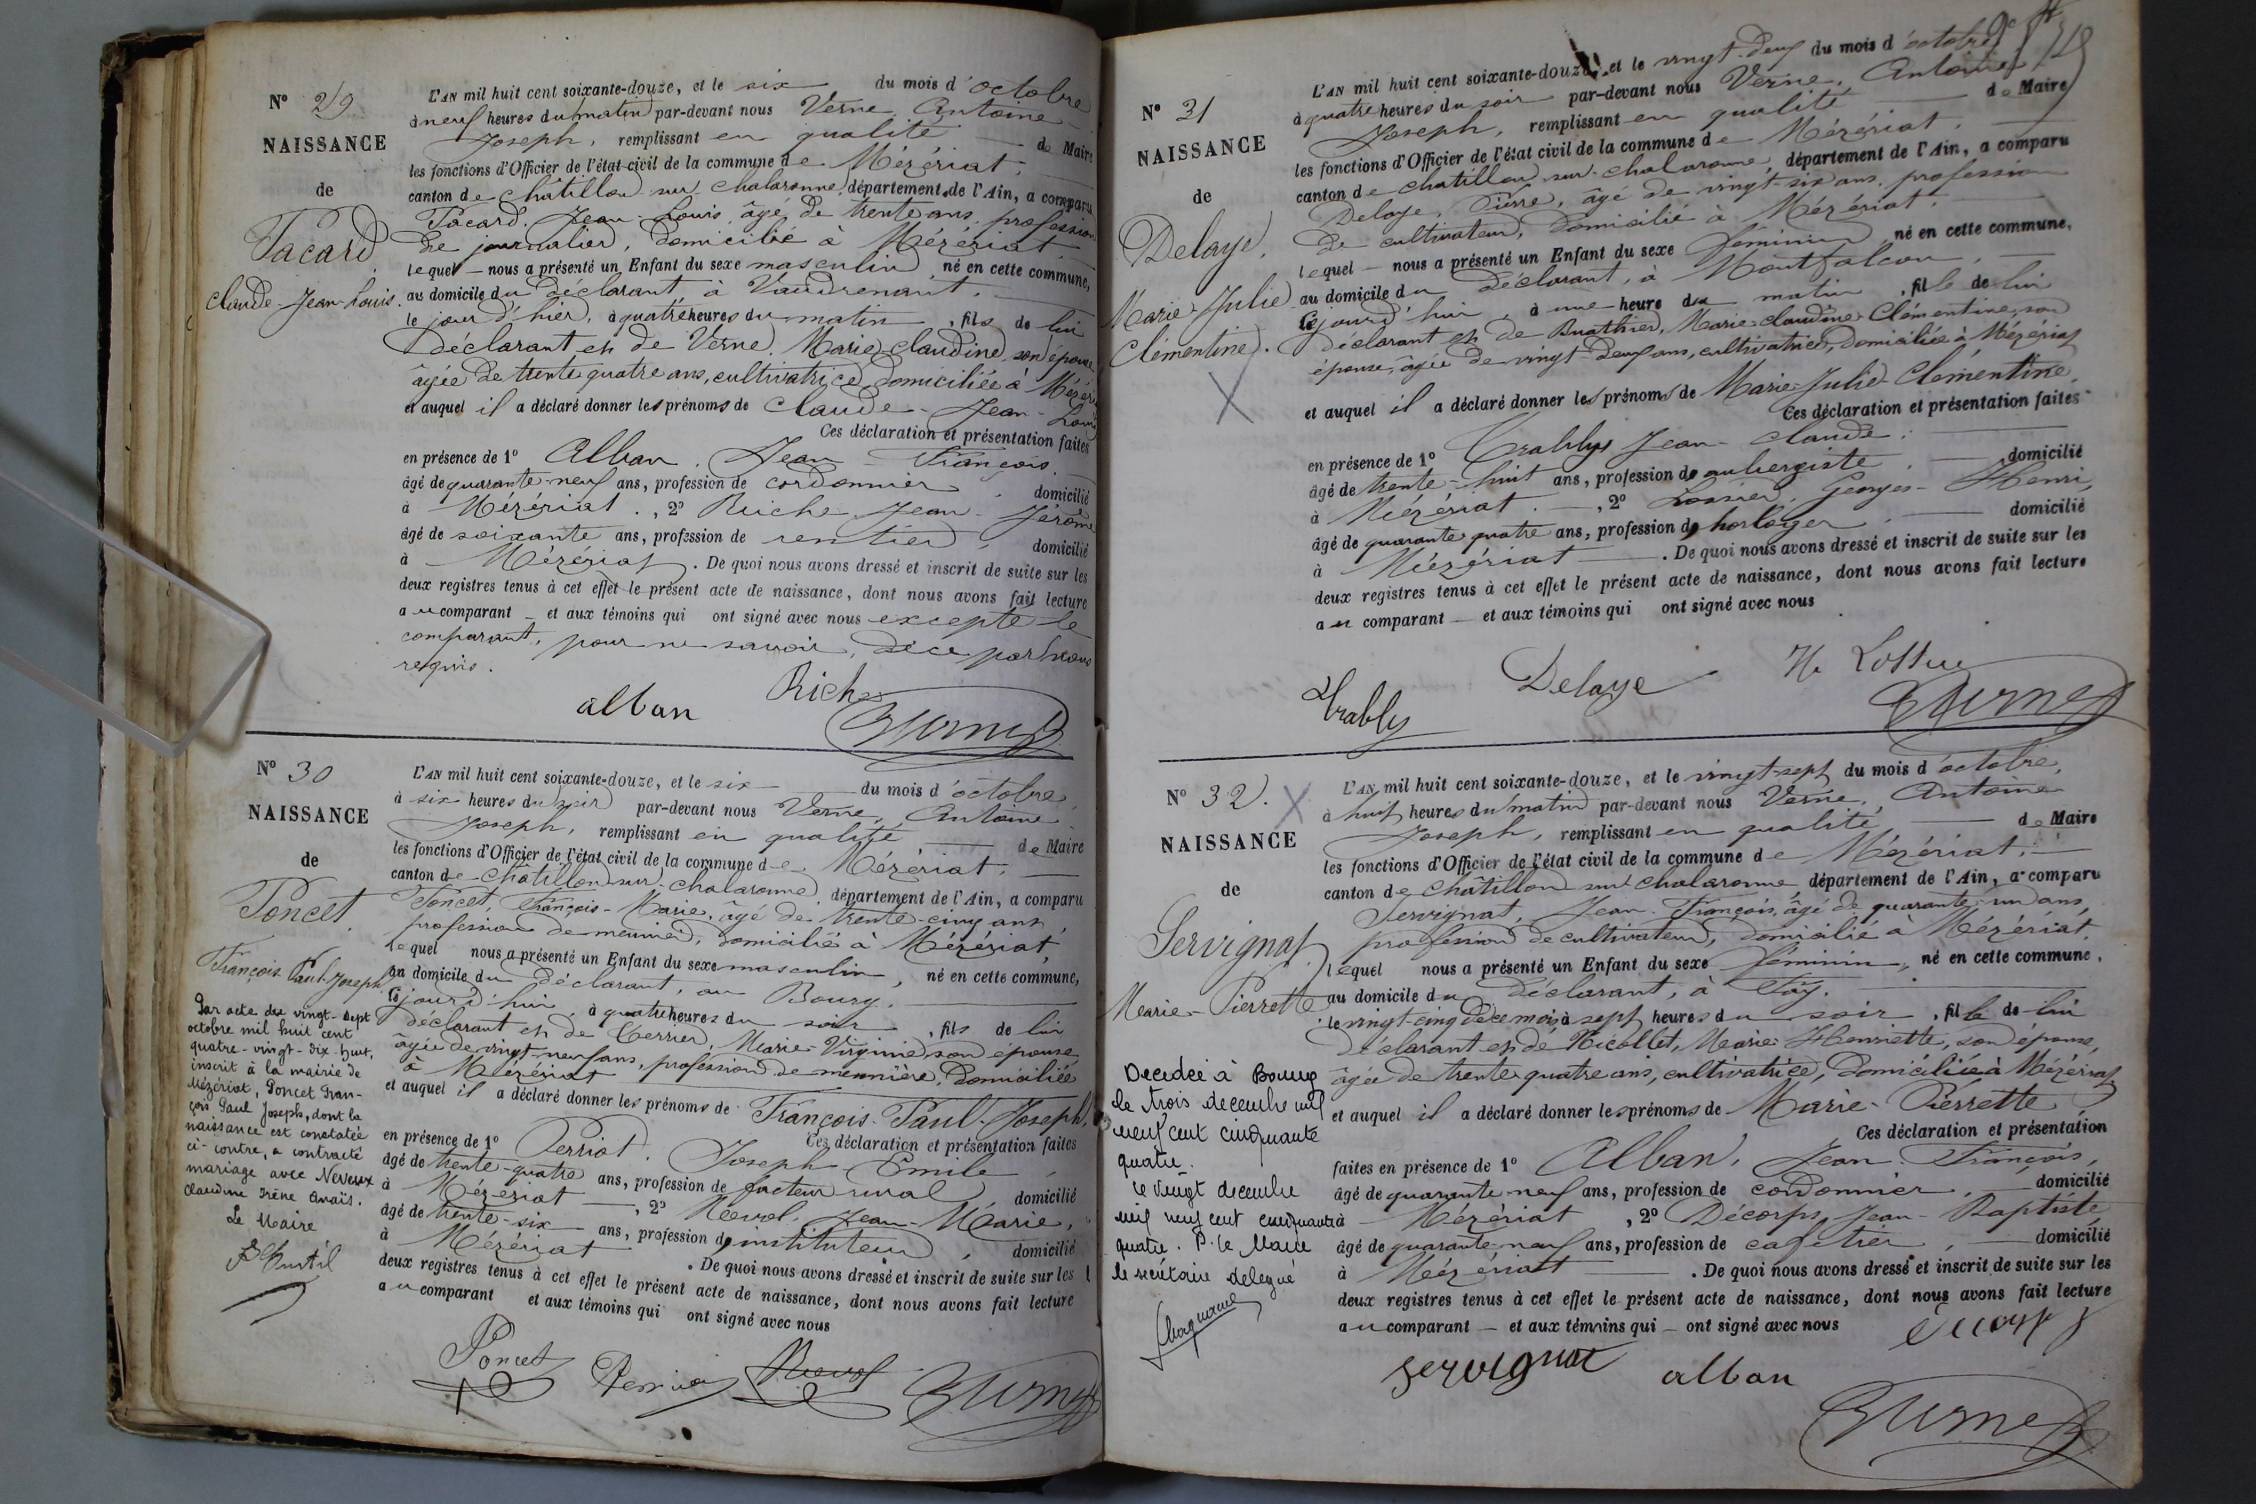 N° 29
NAISSANCE
de
Tacard
Claude-Jean-Louis.
L'AN mil huit cent soixante-douze, et le six du mois d'octobre
à neuf heures du matin par-devant nous Verne Antoine
Joseph, remplissant en qualité de Maire
les fonctions d'Officier de l'état-civil de la commune de Mézériat,
canton de Châtillon sur Chalaronne, département de l'Ain, a comparu
Tacard, Jean-Louis, âgé de trente ans, profession
de journalier, domicilié à Mézériat
lequel — nous a présenté un Enfant du sexe masculin, né en cette commune,
au domicile du déclarant à Vaudrenant,
le jour d'hier, à quatre heures du matin, fils de lui
déclarant et de Verne, Marie Claudine, son épouse
âgée de trente quatre ans, cultivatrice, domiciliée à Mézériat
et auquel il a déclaré donner les prénoms de Claude-Jean-Louis
Ces déclaration et présentation faites
en présence de 1° Alban, Jean-François,
âgé de quarante-neuf ans, profession de cordonnier, domicilié
à Mézériat., 2° Riche Jean-Jérôme
âgé de soixante ans, profession de rentier, domicilié
à Mézériat. De quoi nous avons dressé et inscrit de suite sur les
deux registres tenus à cet effet le présent acte de naissance, dont nous avons fait lecture
au comparant — et aux témoins qui ont signé avec nous excepté le
comparant, pour ne savoir, de ce par nous
requis.
alban Riche
Verne
N° 30
NAISSANCE
de
Poncet
François-Paul-Joseph
L'AN mil huit cent soixante-douze, et le six du mois d'octobre,
à six heures du soir par-devant nous Verne, Antoine
Joseph, remplissant en qualité de Maire
les fonctions d'Officier de l'état civil de la commune de Mézériat,
canton de Châtillon sur Chalaronne, département de l'Ain, a comparu
Poncet, François-Marie, âgé de trente-cinq ans,
profession de meunier, domicilié à Mézériat,
lequel nous a présenté un Enfant du sexe masculin, né en cette commune,
au domicile du déclarant, au Bourg.
Cejourd'hui, à quatre heures du soir, fils de lui
déclarant et de Terrier, Marie-Virginie, son épouse
âgée de vingt-neuf ans, profession de meunière, domiciliée
à Mézériat
et auquel il a déclaré donner les prénoms de François-Paul-Joseph,
Ces déclaration et présentation faites
en présence de 1° Perriat, Joseph Emile,
âgé de trente-quatre ans, profession de facteur rural, domicilié
à Mézériat, 2° Revol, Jean-Marie,
âgé de trente-six ans, profession d'instituteur, domicilié
à Mézériat. De quoi nous avons dressé et inscrit de suite sur les
deux registres tenus à cet effet le présent acte de naissance, dont nous avons fait lecture
au comparant et aux témoins qui ont signé avec nous
Poncet Revol Verne
Par acte du vingt-sept
octobre mil huit cent
quatre-vingt-dix-huit,
inscrit à la mairie de
Mézériat, Poncet Fran-
çois Paul Joseph, dont la
naissance est constatée
ci-contre, a contracté
mariage avec Neveux
Claudine Irène Anaïs.
Le Maire
N° 31
NAISSANCE
de
Delaye,
Marie-Julie
Clémentine.
L'AN mil huit cent soixante-douze, et le vingt-deux du mois d'octobre
à quatre heures du soir par-devant nous Verne, Antoine
Joseph, remplissant en qualité de Maire
les fonctions d'Officier de l'état civil de la commune de Mézériat,
canton de Chatillon sur Chalaronne, département de l'Ain, a comparu
Delaye, Pierre, âgé de vingt-six ans, profession
de cultivateur, domicilié à Mézériat,
lequel — nous a présenté un Enfant du sexe féminin né en cette commune,
au domicile du déclarant, à Montfalcon,
Cejourd'hui, à une heure du matin, fille de lui
déclarant et de Buathier, Marie Claudine Clémentine, son
épouse, âgée de vingt-deux ans, cultivatrice, domiciliée à Mézériat
et auquel il a déclaré donner les prénoms de Marie-Julie-Clémentine,
Ces déclaration et présentation faites
en présence de 1° Trably Jean-Claude,
âgé de trente-huit ans, profession d'aubergiste, domicilié
à Mézériat., 2° Georges-Henri,
âgé de quarante quatre ans, profession d'horloger, domicilié
à Mézériat. De quoi nous avons dressé et inscrit de suite sur les
deux registres tenus à cet effet le présent acte de naissance, dont nous avons fait lecture
au comparant — et aux témoins qui ont signé avec nous
Trably Delaye
Verne
N° 32.
NAISSANCE
de
Servignat
Marie-Pierrette
L'AN mil huit cent soixante-douze, et le vingt-sept du mois d'octobre,
à huit heures du matin par-devant nous Verne, Antoine
Joseph, remplissant en qualité de Maire
les fonctions d'Officier de l'état civil de la commune de Mézériat,
canton de Châtillon sur Chalaronne département de l'Ain, a comparu
Servignat, Jean-François, âgé de quarante-un ans,
profession de cultivateur, domicilié à Mézériat,
lequel nous a présenté un Enfant du sexe féminin, né en cette commune,
au domicile du déclarant, à Fay.
le vingt-cinq de ce mois, à sept heures du soir, fille de lui
déclarant et de Nicollet, Marie-Henriette, son épouse,
âgée de trente quatre ans, cultivatrice, domiciliée à Mézériat
et auquel il a déclaré donner les prénoms de Marie-Pierrette
Ces déclaration et présentation
faites en présence de 1° Alban, Jean-François,
âgé de quarante-neuf ans, profession de cordonnier, domicilié
à Mézériat, 2° Décorps, Jean-Baptiste
âgé de quarante-neuf ans, profession de cafetier, domicilié
à Mézériat. De quoi nous avons dressé et inscrit de suite sur les
deux registres tenus à cet effet le présent acte de naissance, dont nous avons fait lecture
au comparant — et aux témoins qui — ont signé avec nous
servignat alban
Verne
Décédée à Bourg
le trois décembre mil
neuf cent cinquante
quatre.
Le vingt décembre
mil neuf cent cinquante
quatre. P. le Maire
le secrétaire délégué